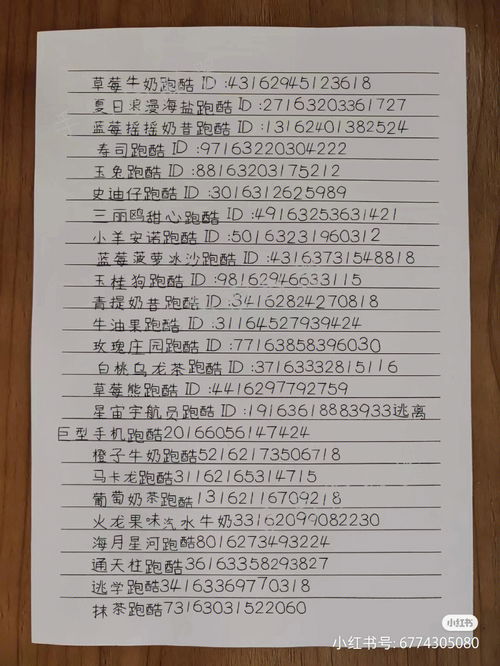 草莓牛奶跑酷ID:43162945123618
夏日浪漫海盐跑酷ID:27163203361727
蓝莓摇摇奶昔跑酷ID:13162401382524
寿司跑酷ID:97163220304222
玉兔跑酷ID:88163203175212
史迪仔跑酷ID:3016312625989
三丽鸥甜心跑酷ID:49163253631421
小羊安诺跑酷ID:50163231960312
蓝莓菠萝冰沙跑酷ID:43163731548818
玉桂狗跑酷ID:98162946633115
青提奶昔跑酷ID:34162824270818
牛油果跑酷ID:31164527939424
玫瑰庄园跑酷ID:77163858396030
白桃乌龙茶跑酷ID:37163332815116
草莓熊跑酷ID:4416297792759
星宙宇航员跑酷ID:19163618883933逃离
巨型手机跑酷20166056147424
橙子牛奶跑酷52162173506718
马卡龙跑酷31162165314715
葡萄奶茶跑酷13162116709218
火龙果味汽水牛奶33162099082230
海月星河跑酷8016273493224
通天柱跑酷36163358293827
逃学跑酷34163369770318
抹茶跑酷73163031522060
小红书
小红书号:6774305080